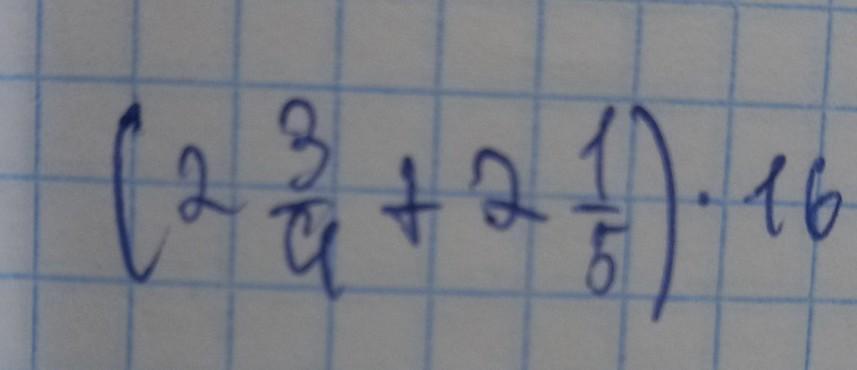 (2 3/4 + 2 1/5) · 16